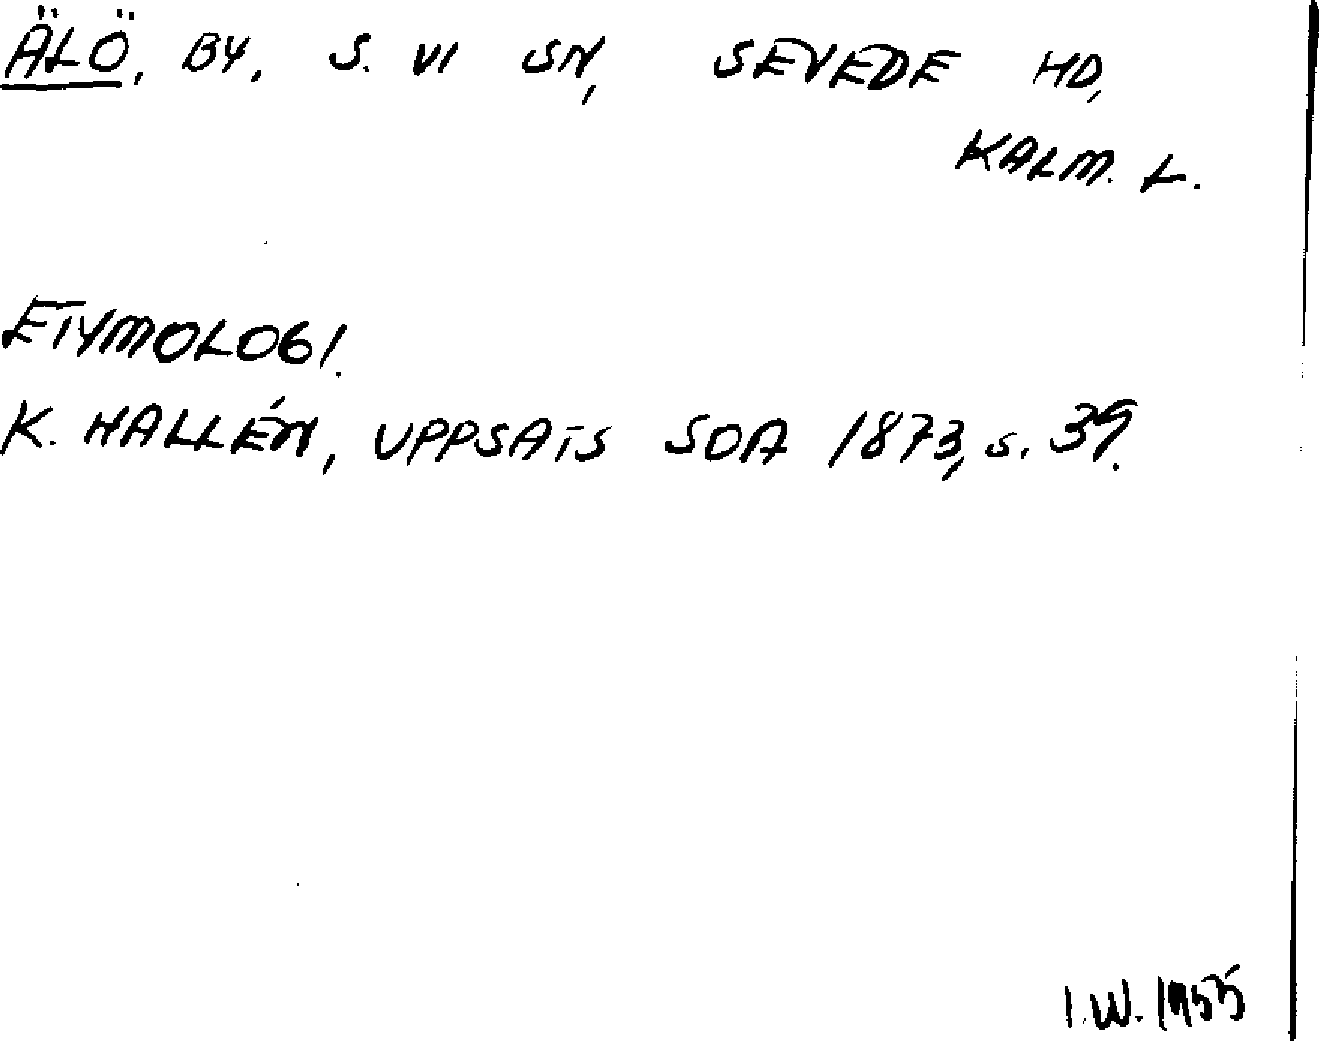 ÄLÖ, BY, S. VI SN, SEVEDE HD,
KALM. L.
ETYMOLOGI.
K. HALLÉN, UPPSATS SOA 1873, s. 39.
I.W. 1955